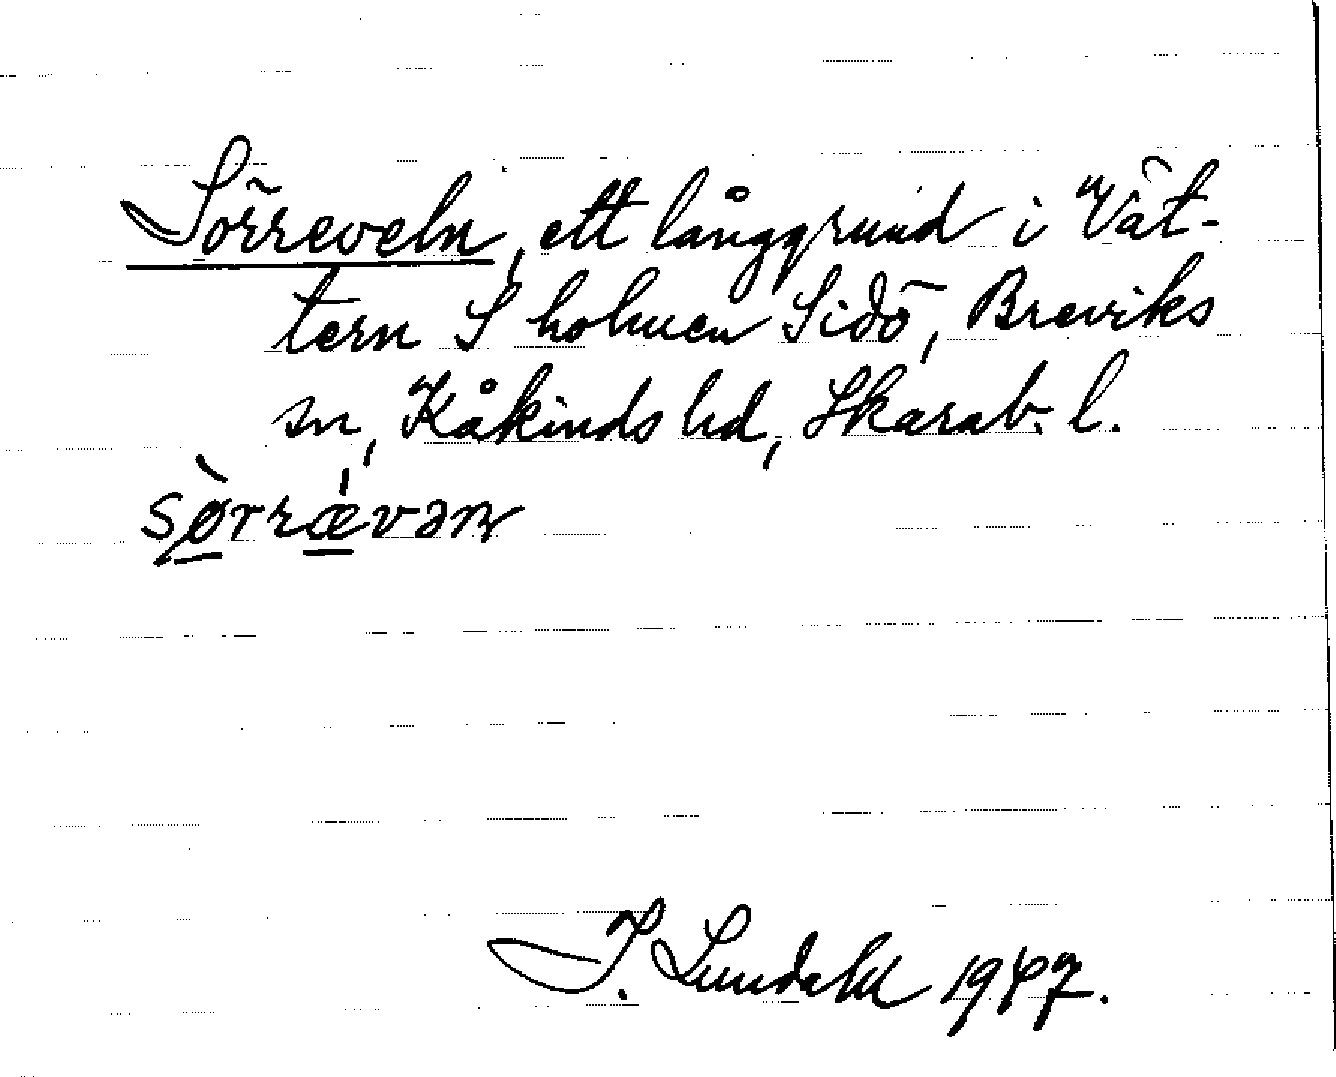 Sörreveln, ett långgrund i Vät-
tern S holmen Sidö, Breviks
sn, Kåkinds hd, Skarab. l.
sø̀rrǽvəln
I. Lundahl 1947.